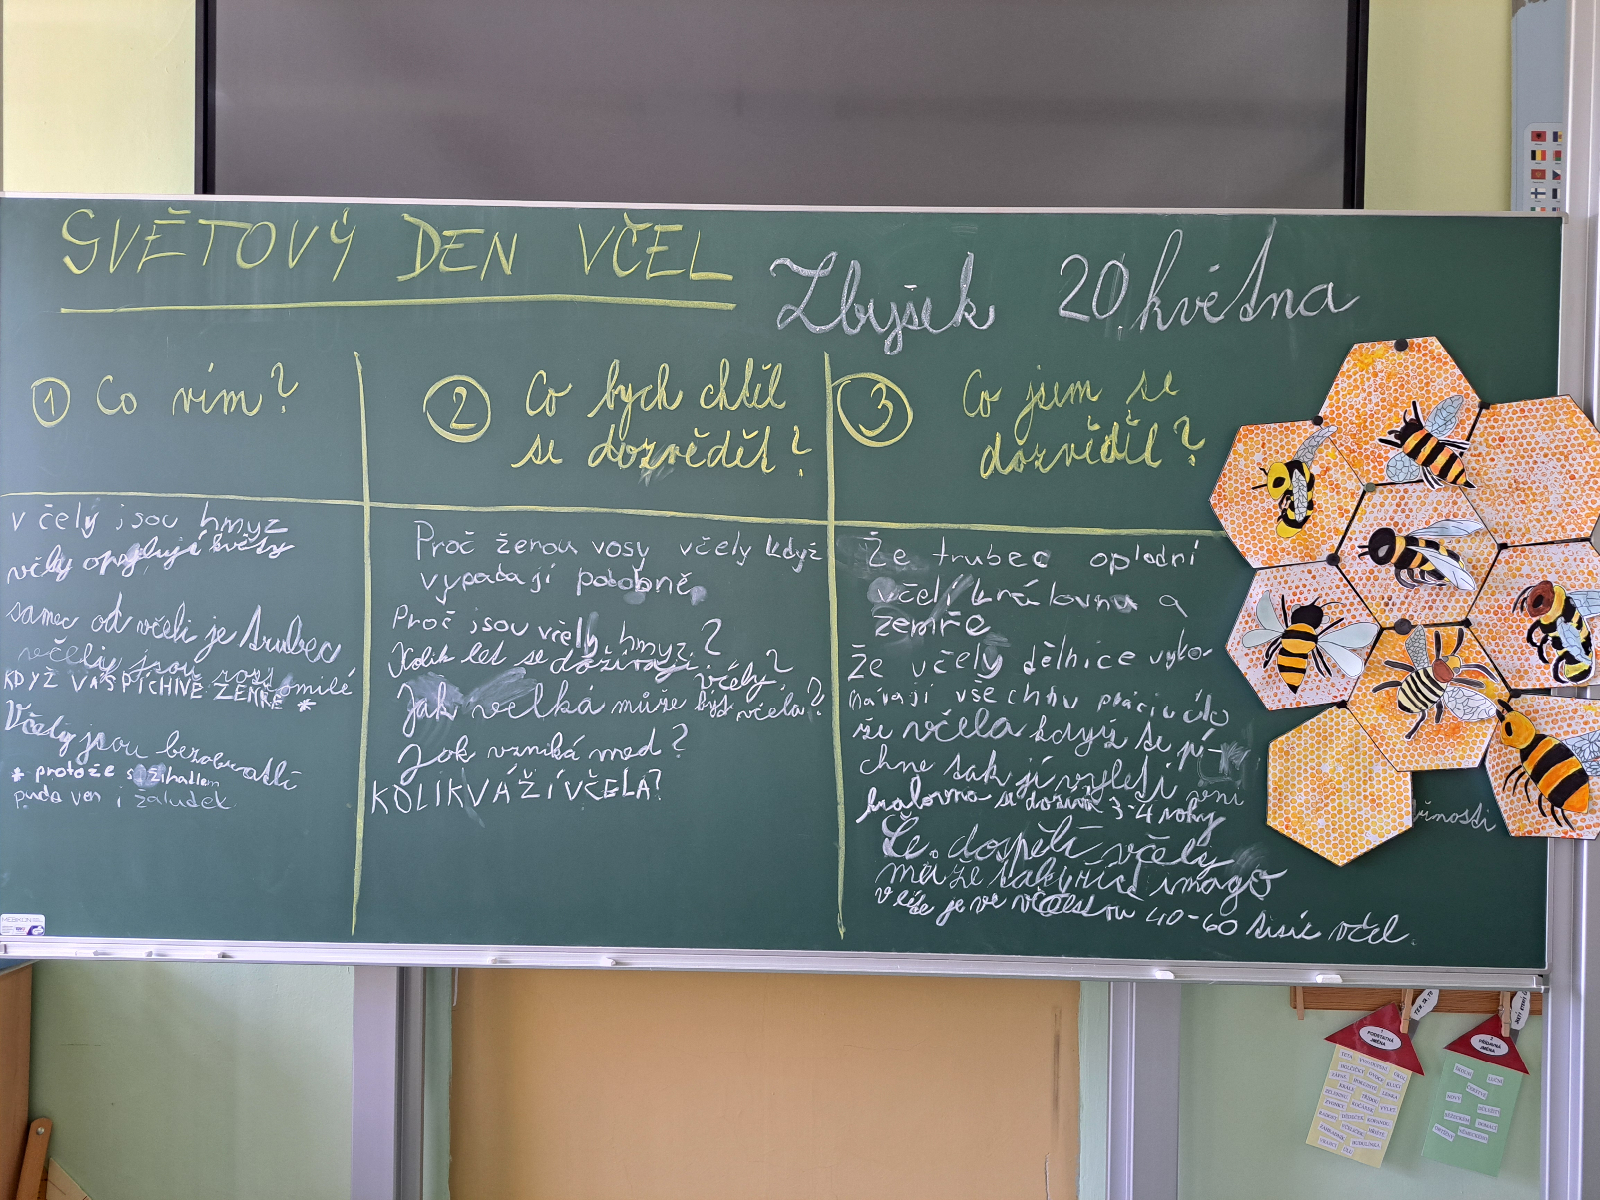 SVĚTOVÝ DEN VČEL
Zbyšek 20. května
1 Co vím?
2 Co bych chtěl
se dozvěděl?
3 Co jsem se
dozvěděl?
včely jsou hmyz
včely opylují květy
samec od včeli je trubec
včeliy jsou roztomilé
KDYŽ VÁS PÍCHNĚ ZEMŘE *
Včely jsou bezobratlí
* protože s žihadlem
puda ven i žaludek
Proč ženou vosy včely když
vypadají podobně
Proč jsou včely hmyz?
Kolik let se dožívají včely?
Jak velká může být včela?
Jak vzniká med?
KOLIK VÁŽÍ VČELA?
Že trubec oplodní
včelí královnu a
zemře
Že včely dělnice vyko-
návají všechnu práci
že včela když se pí-
chne tak jí vyletí
kralovna se dožívá 3-4 roky
Že dospělí včely
může taky říct imago
v létě je ve včelstvu 40-60 tisíc včel.
MEBIKON
1
PODSTATNÁ
JMÉNA
2
PŘÍDAVNÁ
JMÉNA